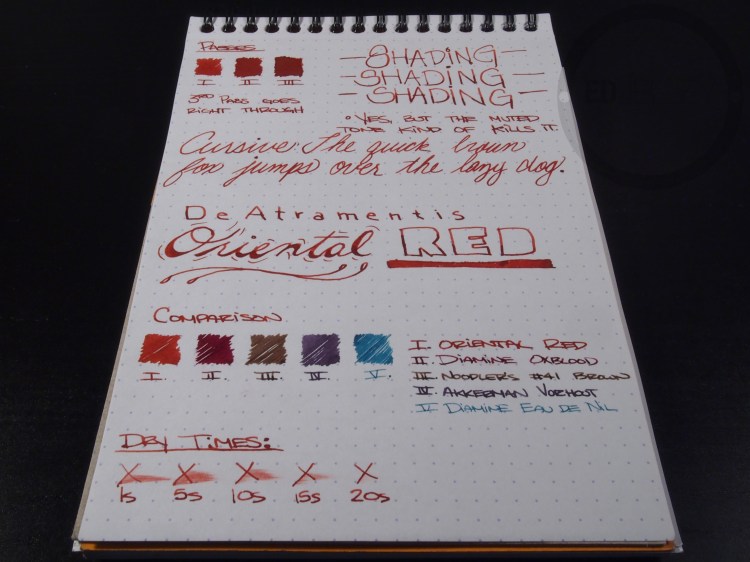 Passes
I II III
3RD Pass goes
right through
-SHADING-
-SHADING-
-SHADING-
° Yes, but the muted
tone kind of kills it.
Cursive: The quick brown
fox jumps over the lazy dog.
De Atramentis
Oriental RED
Comparison
I. II. III. IV. V.
I. Oriental Red
II. Diamine Oxblood
III. Noodlers #41 Brown
IV. Akkerman Voorhout
V. Diamine Eau de Nil
Dry Times:
X X X X X
1s 5s 10s 15s 20s